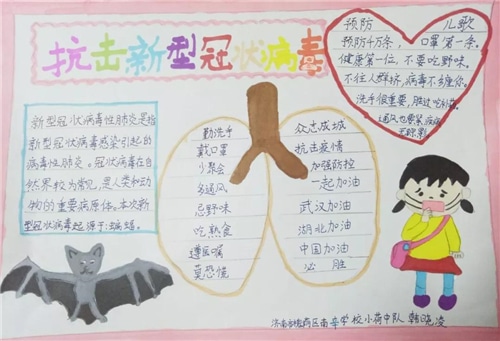 抗击新型冠状病毒
预防 儿歌
预防千万条，口罩第一条。
健康第一位，不要吃野味。
不往人群挤，病毒不缠你。
洗手很重要，胜过吃补药。
通风也要紧，疾病
无踪影
新型冠状病毒性肺炎是指
新型冠状病毒感染引起的
病毒性肺炎。冠状病毒在自
然界较为常见，是人类和动
物的重要病原体。本次新
型冠状病毒起源于蝙蝠。
勤洗手
戴口罩
少聚会
多通风
忌野味
吃熟食
遵医嘱
莫恐慌
众志成城
抗击疫情
加强防控
一起加油
武汉加油
湖北加油
中国加油
必胜
学校小荷中队 韩晓凌